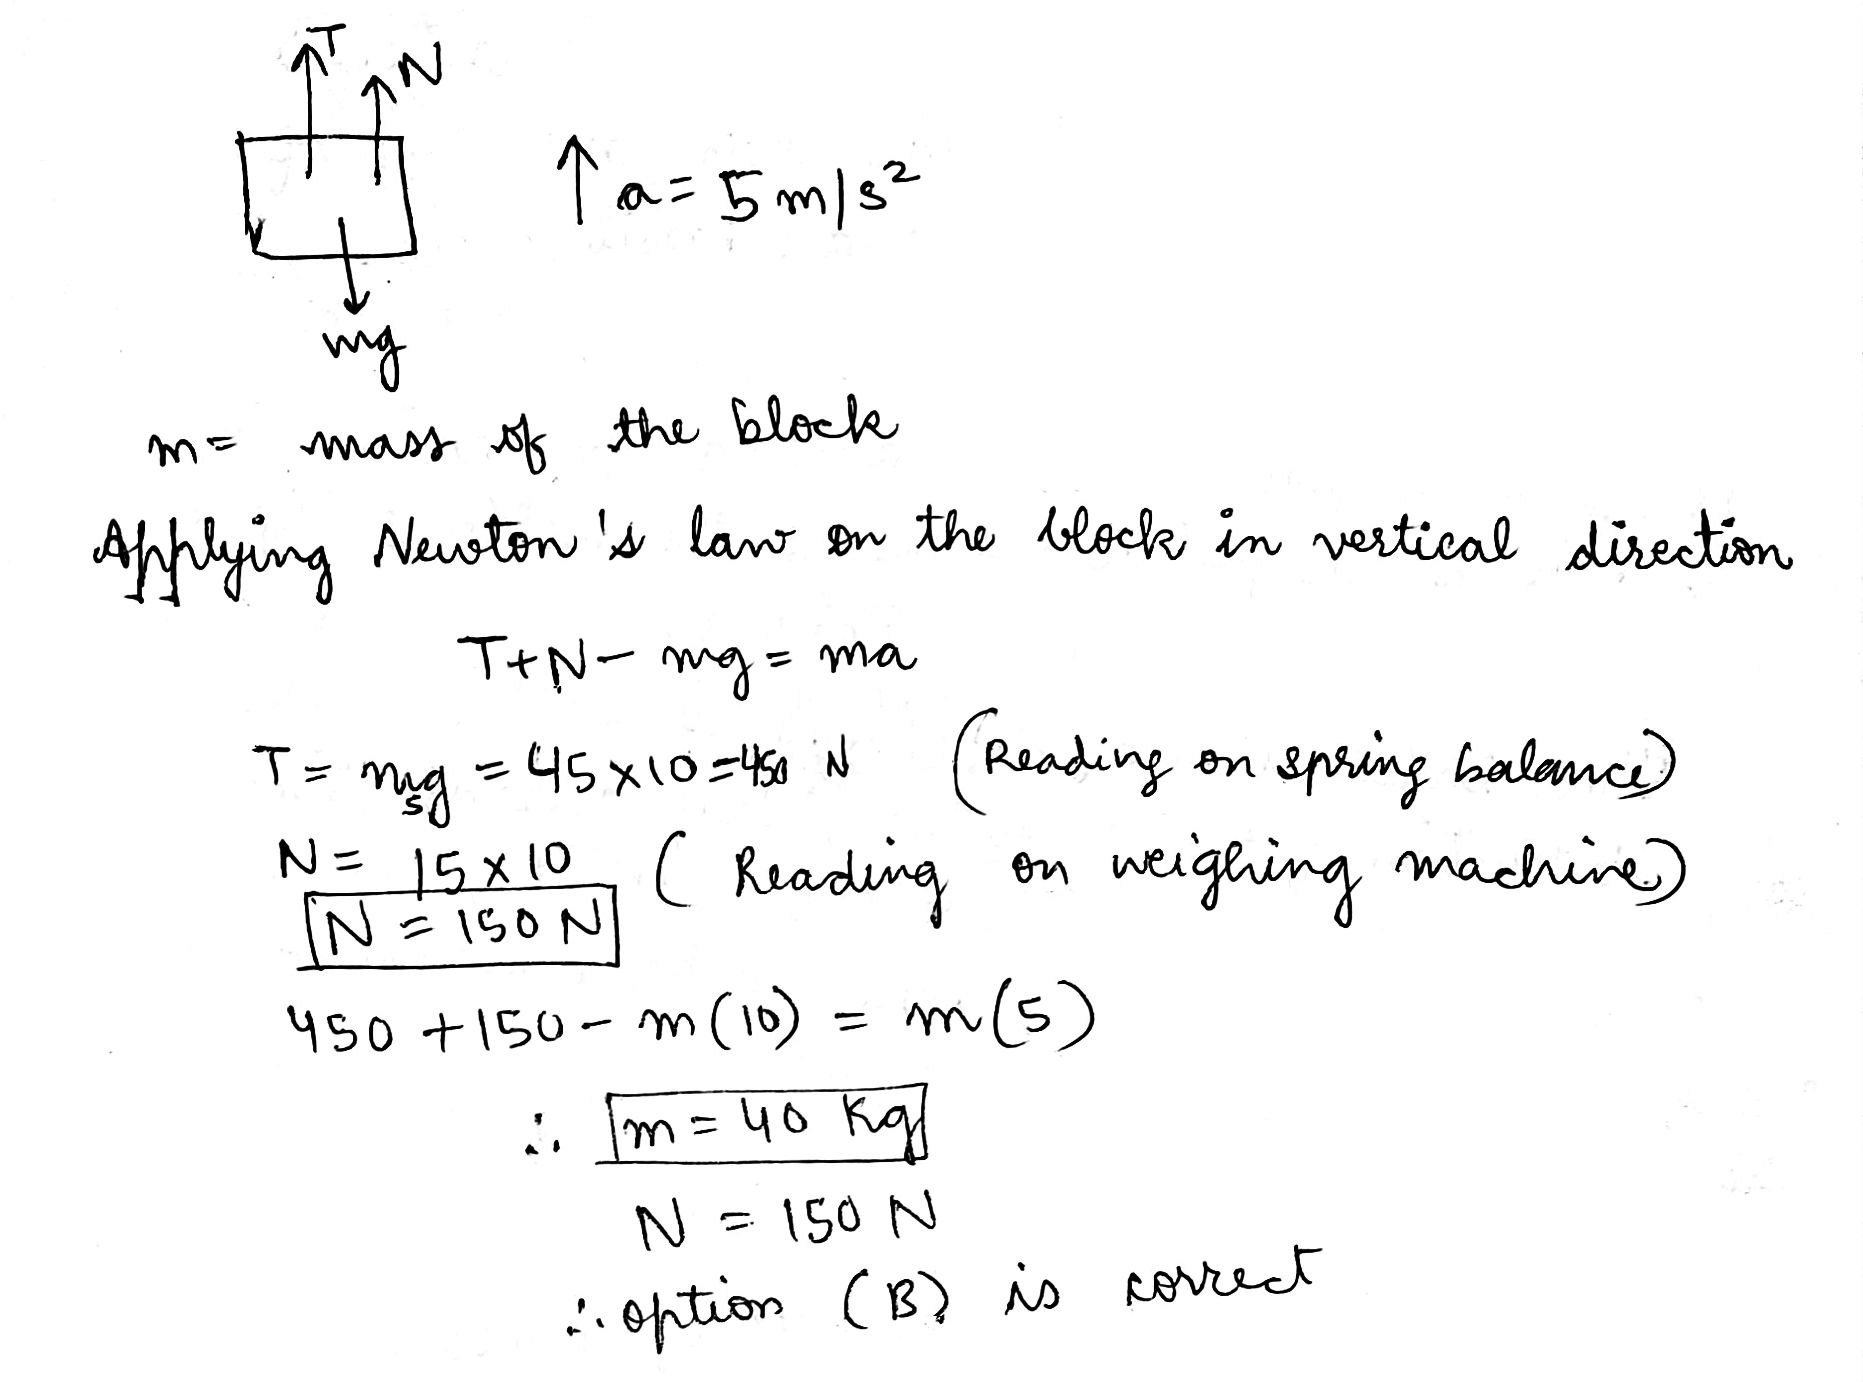 T
N
↑ a = 5 m/s²
mg
m = mass of the block
Applying Newton's law on the block in vertical direction
T + N - mg = ma
T = m_s g = 45 × 10 = 450 N (Reading on spring balance)
N = 15 × 10 ( Reading on weighing machine)
N = 150 N
450 + 150 - m(10) = m(5)
∴ m = 40 Kg
N = 150 N
∴ option (B) is correct